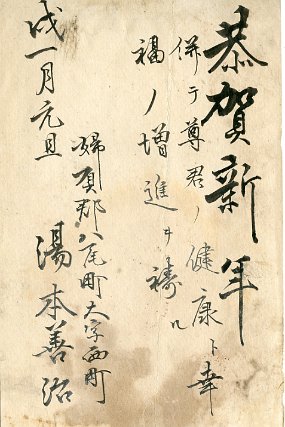 恭賀新年
併テ尊君ノ健康ト幸
福ノ増進ヲ禱ル
戌一月元旦
婦負郡八尾町大字西町
湯本善治